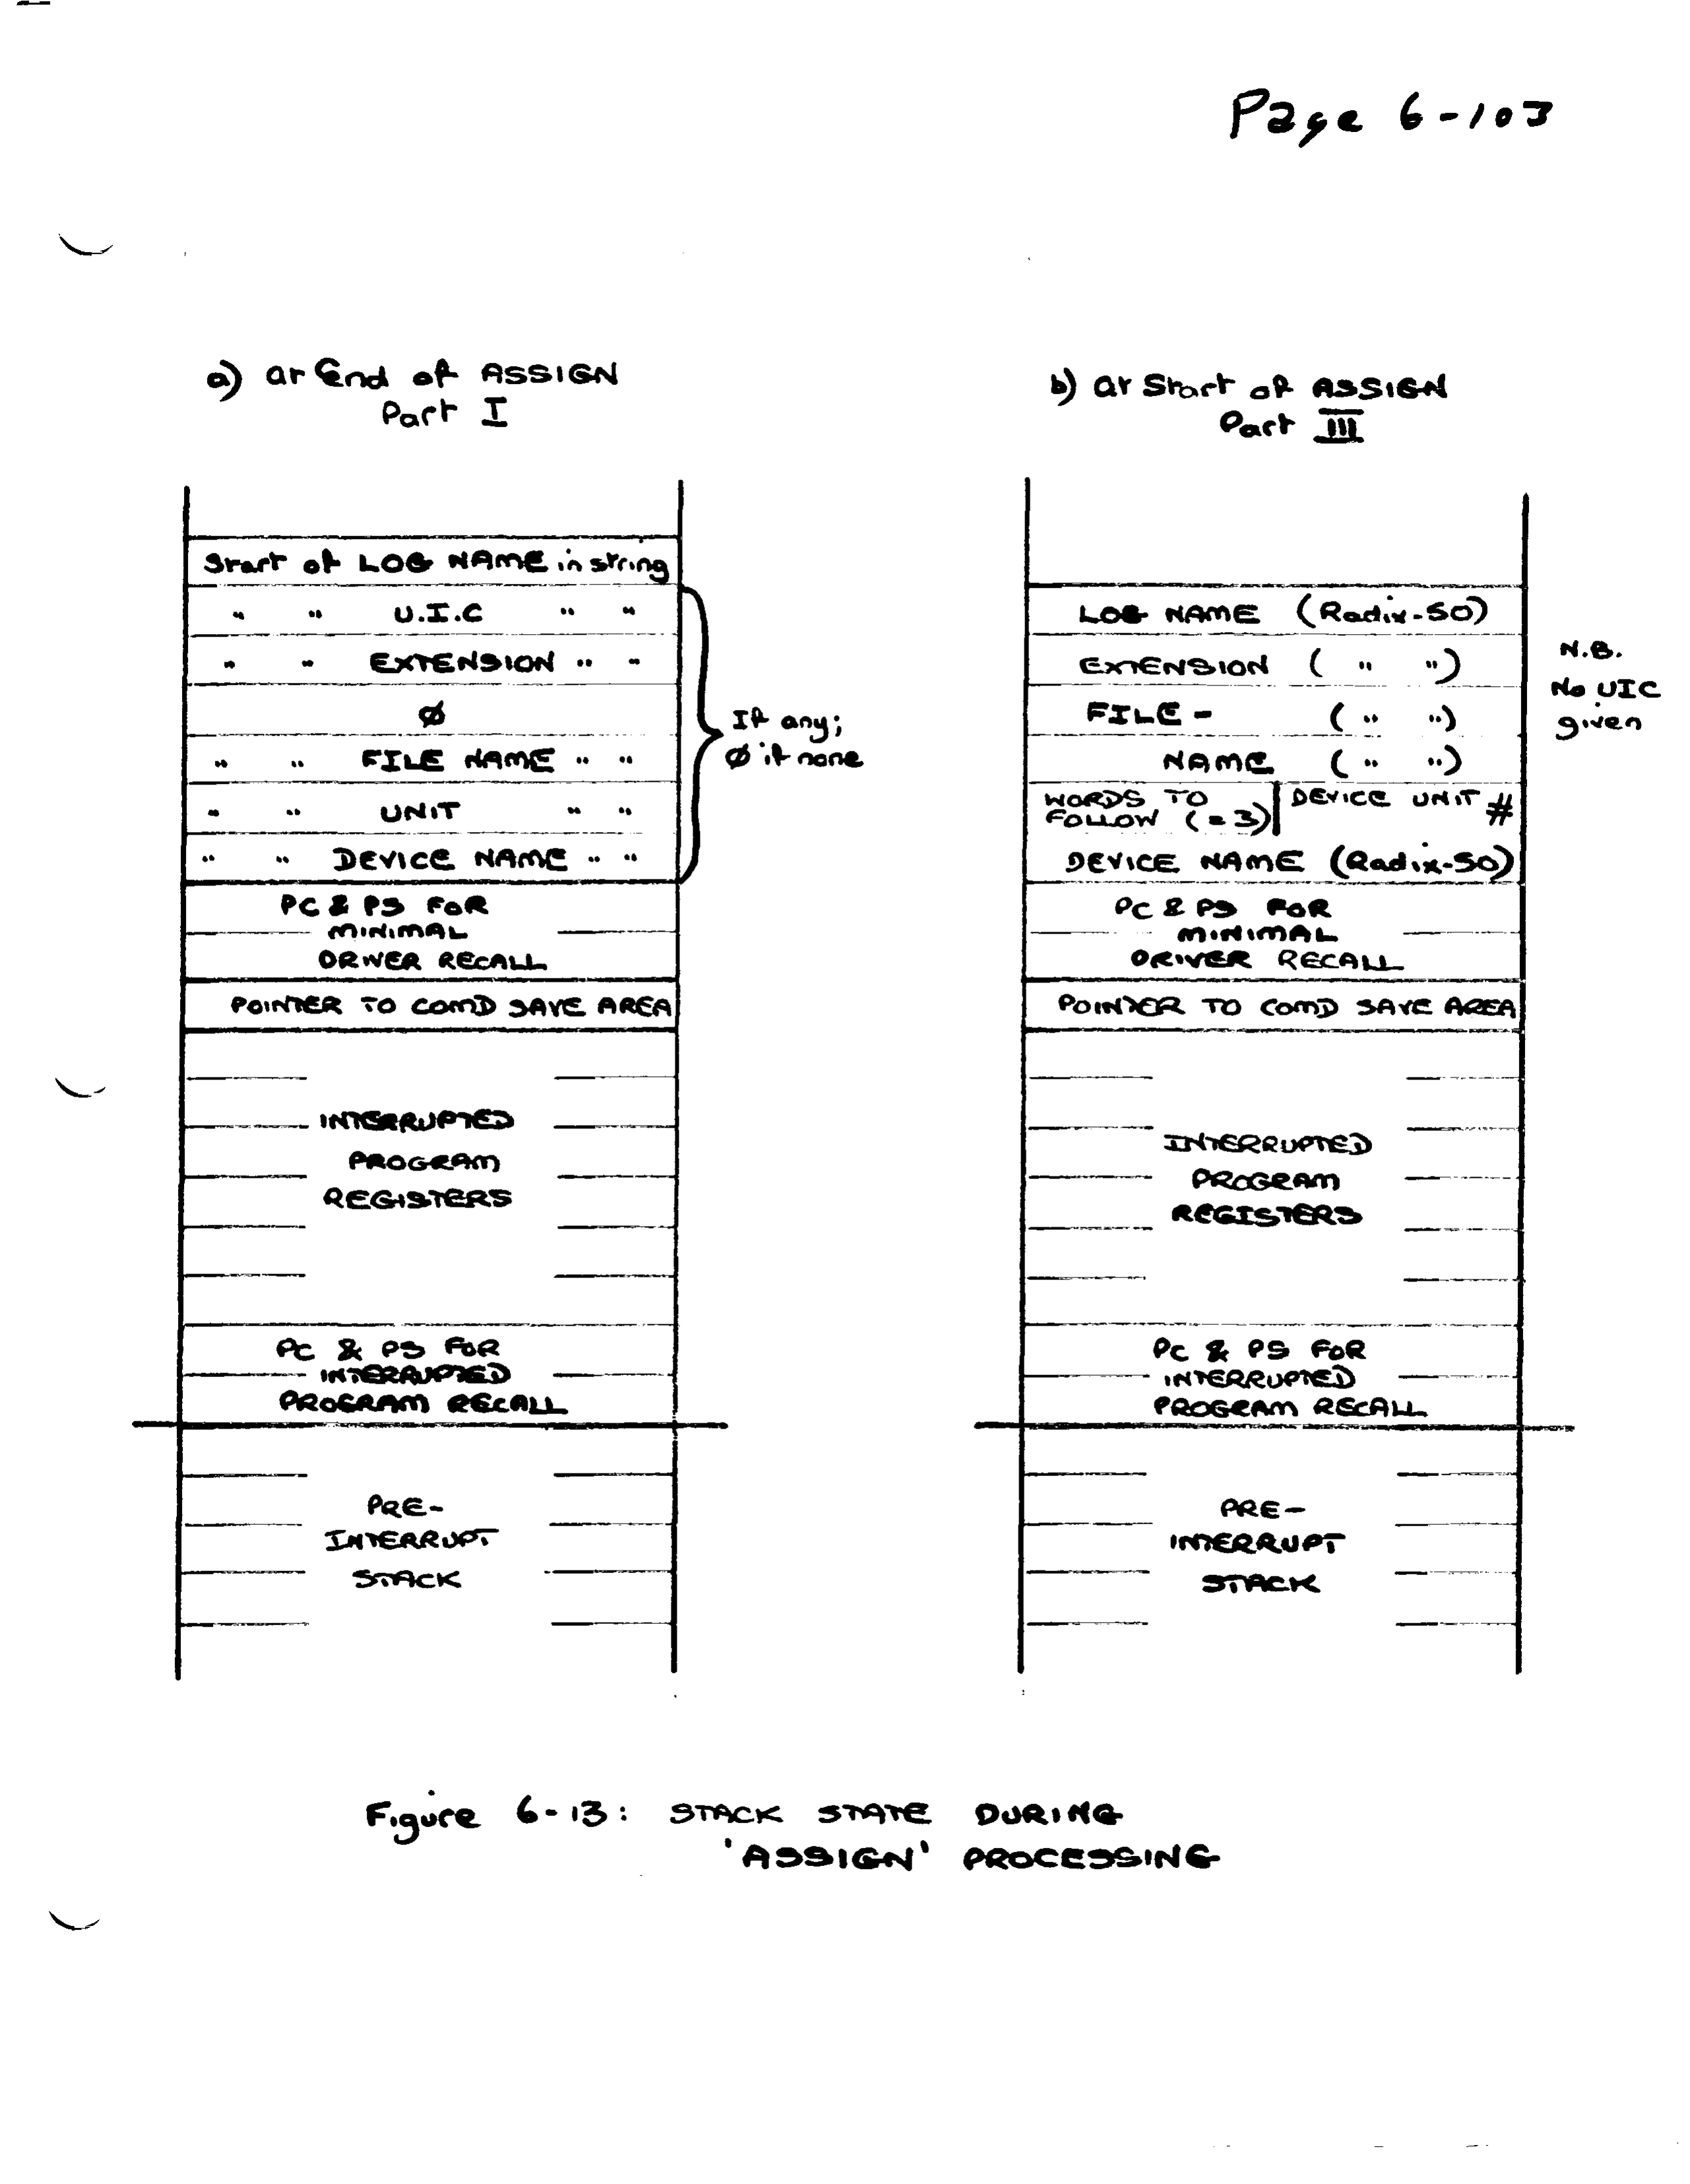 Page 6-103
a) at End of ASSIGN
Part I
Start of LOG NAME in string
" " U.I.C " "
" " EXTENSION " "
Ø
" " FILE NAME " "
" " UNIT " "
" " DEVICE NAME " "
If any;
Ø if none
PC & PS FOR
MINIMAL
DRIVER RECALL
POINTER TO COMD SAVE AREA
INTERRUPTED
PROGRAM
REGISTERS
PC & PS FOR
INTERRUPTED
PROGRAM RECALL
PRE-
INTERRUPT
STACK
b) at Start of ASSIGN
Part III
LOG NAME (Radix-50)
EXTENSION ( " " )
FILE - ( " " )
NAME ( " " )
WORDS TO
FOLLOW (=3)
DEVICE UNIT #
DEVICE NAME (Radix-50)
N.B.
No UIC
given
PC & PS FOR
MINIMAL
DRIVER RECALL
POINTER TO COMD SAVE AREA
INTERRUPTED
PROGRAM
REGISTERS
PC & PS FOR
INTERRUPTED
PROGRAM RECALL
PRE-
INTERRUPT
STACK
Figure 6-13: STACK STATE DURING
'ASSIGN' PROCESSING